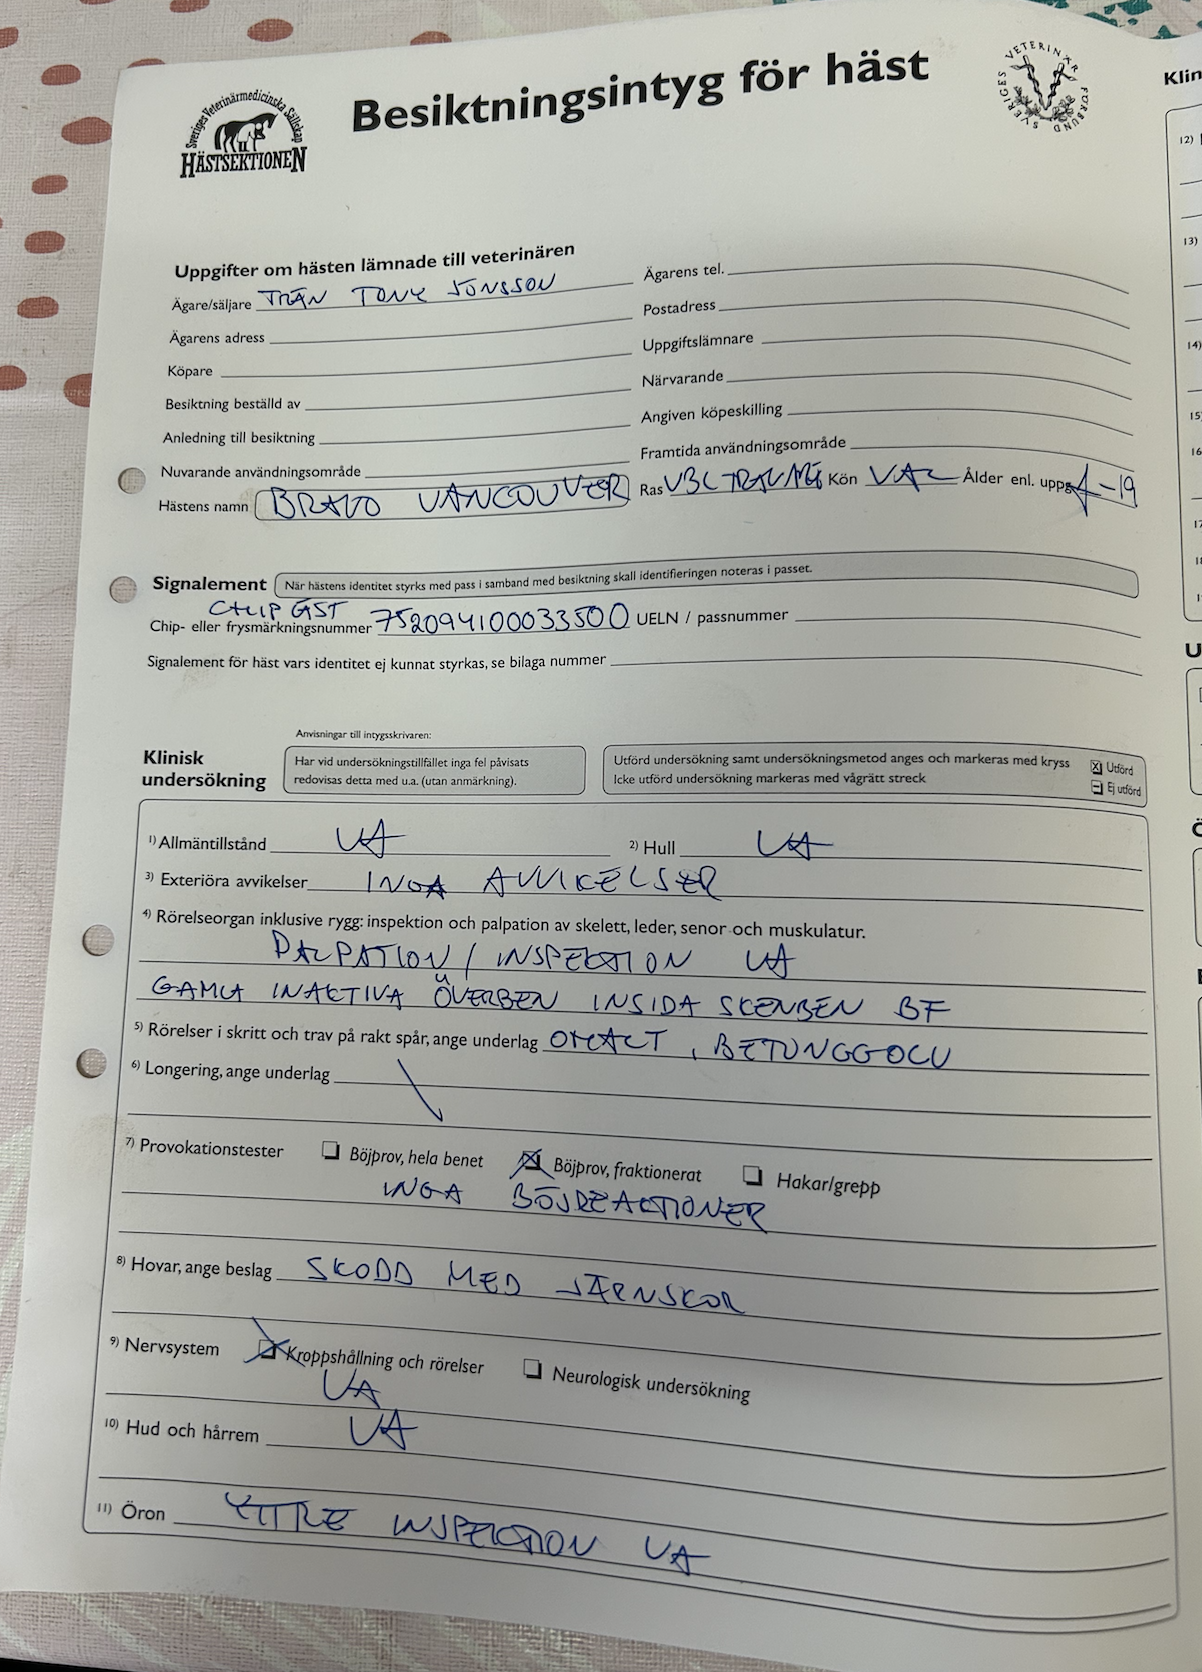 Sveriges Veterinärmedicinska Sällskap
HÄSTSEKTIONEN
Besiktningsintyg för häst
SVERIGES VETERINÄRFÖRBUND
Klin
Uppgifter om hästen lämnade till veterinären
Ägare/säljare TRÄN TONY JONSSON
Ägarens tel.
Ägarens adress
Postadress
Köpare
Uppgiftslämnare
Besiktning beställd av
Närvarande
Anledning till besiktning
Angiven köpeskilling
Nuvarande användningsområde
Framtida användningsområde
Hästens namn BRAVO VANCOUVER Ras VBL TRAVARE Kön VAL Ålder enl. uppg. F-19
Signalement När hästens identitet styrks med pass i samband med besiktning skall identifieringen noteras i passet.
CHIP GST
Chip- eller frysmärkningsnummer 752094100033500 UELN / passnummer
Signalement för häst vars identitet ej kunnat styrkas, se bilaga nummer
Anvisningar till intygsskrivaren:
Klinisk undersökning
Har vid undersökningstillfället inga fel påvisats
redovisas detta med u.a. (utan anmärkning).
Utförd undersökning samt undersökningsmetod anges och markeras med kryss
Icke utförd undersökning markeras med vågrätt streck
Utförd
Ej utförd
1) Allmäntillstånd UA 2) Hull UA
3) Exteriöra avvikelser INGA AVVIKELSER
4) Rörelseorgan inklusive rygg: inspektion och palpation av skelett, leder, senor och muskulatur.
PALPATION / INSPEKTION UA
GAMLA INAKTIVA ÖVERBEN INSIDA SKENBEN BF
5) Rörelser i skritt och trav på rakt spår, ange underlag OHALT, BETONGGOLV
6) Longering, ange underlag
7) Provokationstester Böjprov, hela benet Böjprov, fraktionerat Hakar/grepp
INGA BÖJREAKTIONER
8) Hovar, ange beslag SKODD MED JÄRNSKOR
9) Nervsystem Kroppshållning och rörelser Neurologisk undersökning
UA
10) Hud och hårrem UA
11) Öron YTTRE INSPEKTION UA
12)
13)
14)
15)
16)
17)